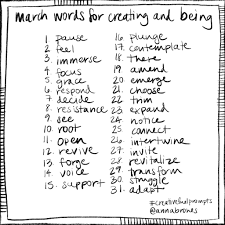 march words for creating and being
1. pause
2. feel
3. immerse
4. focus
5. grace
6. respond
7. decide
8. resistance
9. see
10. root
11. open
12. revive
13. forge
14. voice
15. support
16. plunge
17. contemplate
18. there
19. amend
20. emerge
21. choose
22. trim
23. expand
24. notice
25. connect
26. intertwine
27. invite
28. revitalize
29. transform
30. struggle
31. adapt
#creativefuelprompts
@annabrones